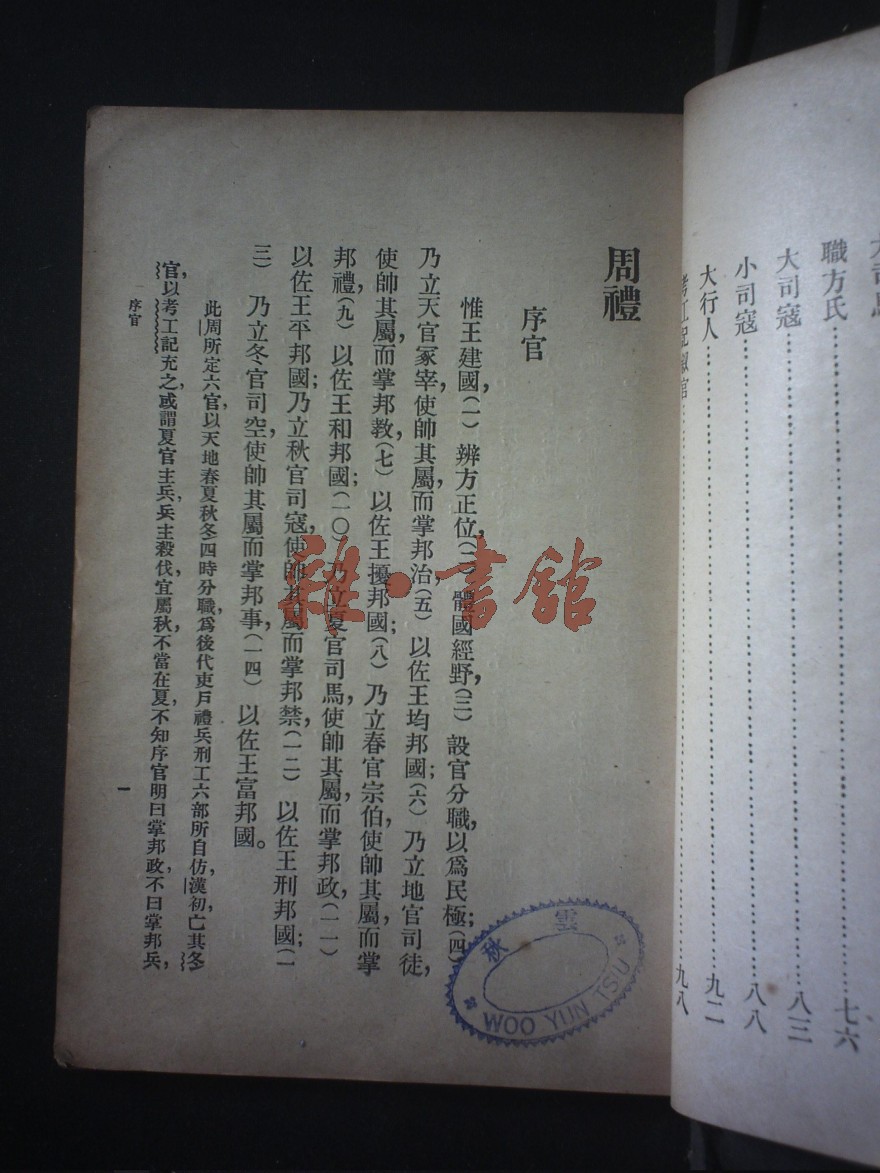 職方氏……七六
大司寇……八三
小司寇……八八
大行人……九二
九八
周禮
序官
惟王建國，(一)辨方正位，(二)體國經野，(三)設官分職，以爲民極；(四)
乃立天官冢宰，使帥其屬而掌邦治，(五)以佐王均邦國；(六)乃立地官司徒，
使帥其屬而掌邦教，(七)以佐王擾邦國；(八)乃立春官宗伯，使帥其屬而掌
邦禮，(九)以佐王和邦國；(一〇)乃立夏官司馬，使帥其屬而掌邦政，(一一)
以佐王平邦國；乃立秋官司寇，使帥其屬而掌邦禁，(一二)以佐王刑邦國；(一
三)乃立冬官司空，使帥其屬而掌邦事，(一四)以佐王富邦國。
此周所定六官，以天地春夏秋冬四時分職，爲後代吏戶禮兵刑工六部所自仿，漢初亡其冬
官，以考工記充之，或謂夏官主兵，兵主殺伐，宜屬秋，不當在夏，不知序官明曰掌邦政，不曰掌邦兵，
序官
一
雲秋
WOO YUN TSU
雜·書館